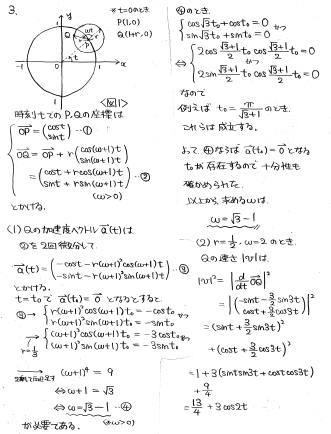 3.
※t=0のとき
P(1,0)
Q(1+r,0)
y
Q
ωt
r
P
t
-1
0
1
x
-1
<図1>
時刻tでのP,Qの座標は
OP = (cost sint) …①
OQ = OP + r(cos(ω+1)t sin(ω+1)t)
= (cost + rcos(ω+1)t sint + rsin(ω+1)t) …②
(ω>0)
とかける。
(1) Qの加速度ベクトルa(t)は
②を2回微分して、
a(t) = (-cost - r(ω+1)²cos(ω+1)t -sint - r(ω+1)²sin(ω+1)t) …③
とかける。
t=t₀で a(t₀)=0 となるとすると
③→ { r(ω+1)²cos(ω+1)t₀ = -cost₀ かつ
r(ω+1)²sin(ω+1)t₀ = -sint₀
→ { (ω+1)²cos(ω+1)t₀ = -3cost₀ かつ
r=1/3 (ω+1)²sin(ω+1)t₀ = -3sint₀
→ (ω+1)⁴ = 9
2乗して辺々足す
⇔ ω+1 = √3
⇔ ω = √3 - 1 …④
が必要である。 (※ω>0)
④のとき、
{ cos√3t₀ + cost₀ = 0 かつ
sin√3t₀ + sint₀ = 0
⇔ { 2cos (√3+1)/2 t₀ cos (√3-1)/2 t₀ = 0
かつ
2sin (√3+1)/2 t₀ cos (√3-1)/2 t₀ = 0
なので
例えば t₀ = π/(√3-1) のとき、
これらは成立する。
よって、④ならば a(t₀)=0 となる
t₀が存在するので十分性も
確かめられた。
以上から、求めるωは、
ω = √3 - 1
(2) r=1/2, ω=2のとき、
Qの速さ|v|は、
|v|² = |d/dt OQ|²
= |(-sint - 3/2 sin3t cost + 3/2 cos3t)|²
= (sint + 3/2 sin3t)²
+ (cost + 3/2 cos3t)²
= 1 + 3(sintsin3t + costcos3t)
+ 9/4
= 13/4 + 3cos2t